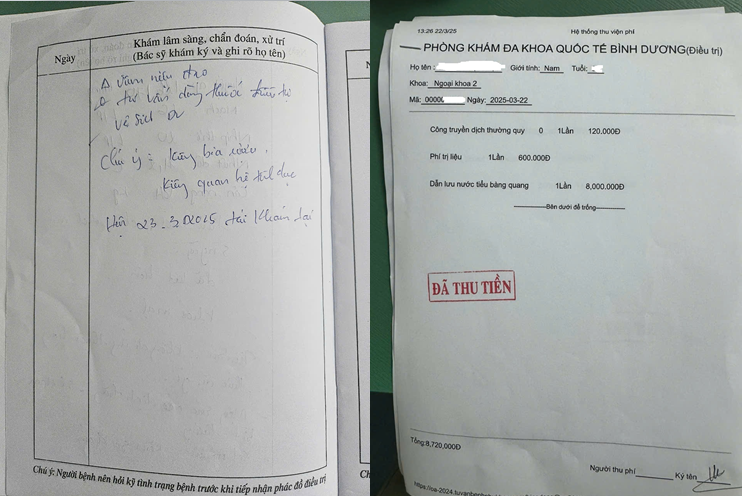 Ngày
Khám lâm sàng, chẩn đoán, xử trí
(Bác sỹ khám ký và ghi rõ họ tên)
Δ viêm niệu đạo
tư vấn dùng thuốc điều trị
vệ sinh
Chú ý: Kiêng bia rượu,
Kiêng quan hệ tình dục
Hẹn 23.3.2025 tái khám lại
Chú ý: Người bệnh nên hỏi kỹ tình trạng bệnh trước khi tiếp nhận phác đồ điều trị
13:26 22/3/25 Hệ thống thu viện phí
PHÒNG KHÁM ĐA KHOA QUỐC TẾ BÌNH DƯƠNG(Điều trị)
Họ tên : Giới tính: Nam Tuổi:
Khoa: Ngoại khoa 2
Mã: 0000 Ngày: 2025-03-22
Công truyền dịch thường quy 0 1Lần 120.000Đ
Phí trị liệu 1Lần 600.000Đ
Dẫn lưu nước tiểu bàng quang 1Lần 8,000.000Đ
Bên dưới để trống
ĐÃ THU TIỀN
Tổng:8,720,000Đ
Người thu phí Ký tên